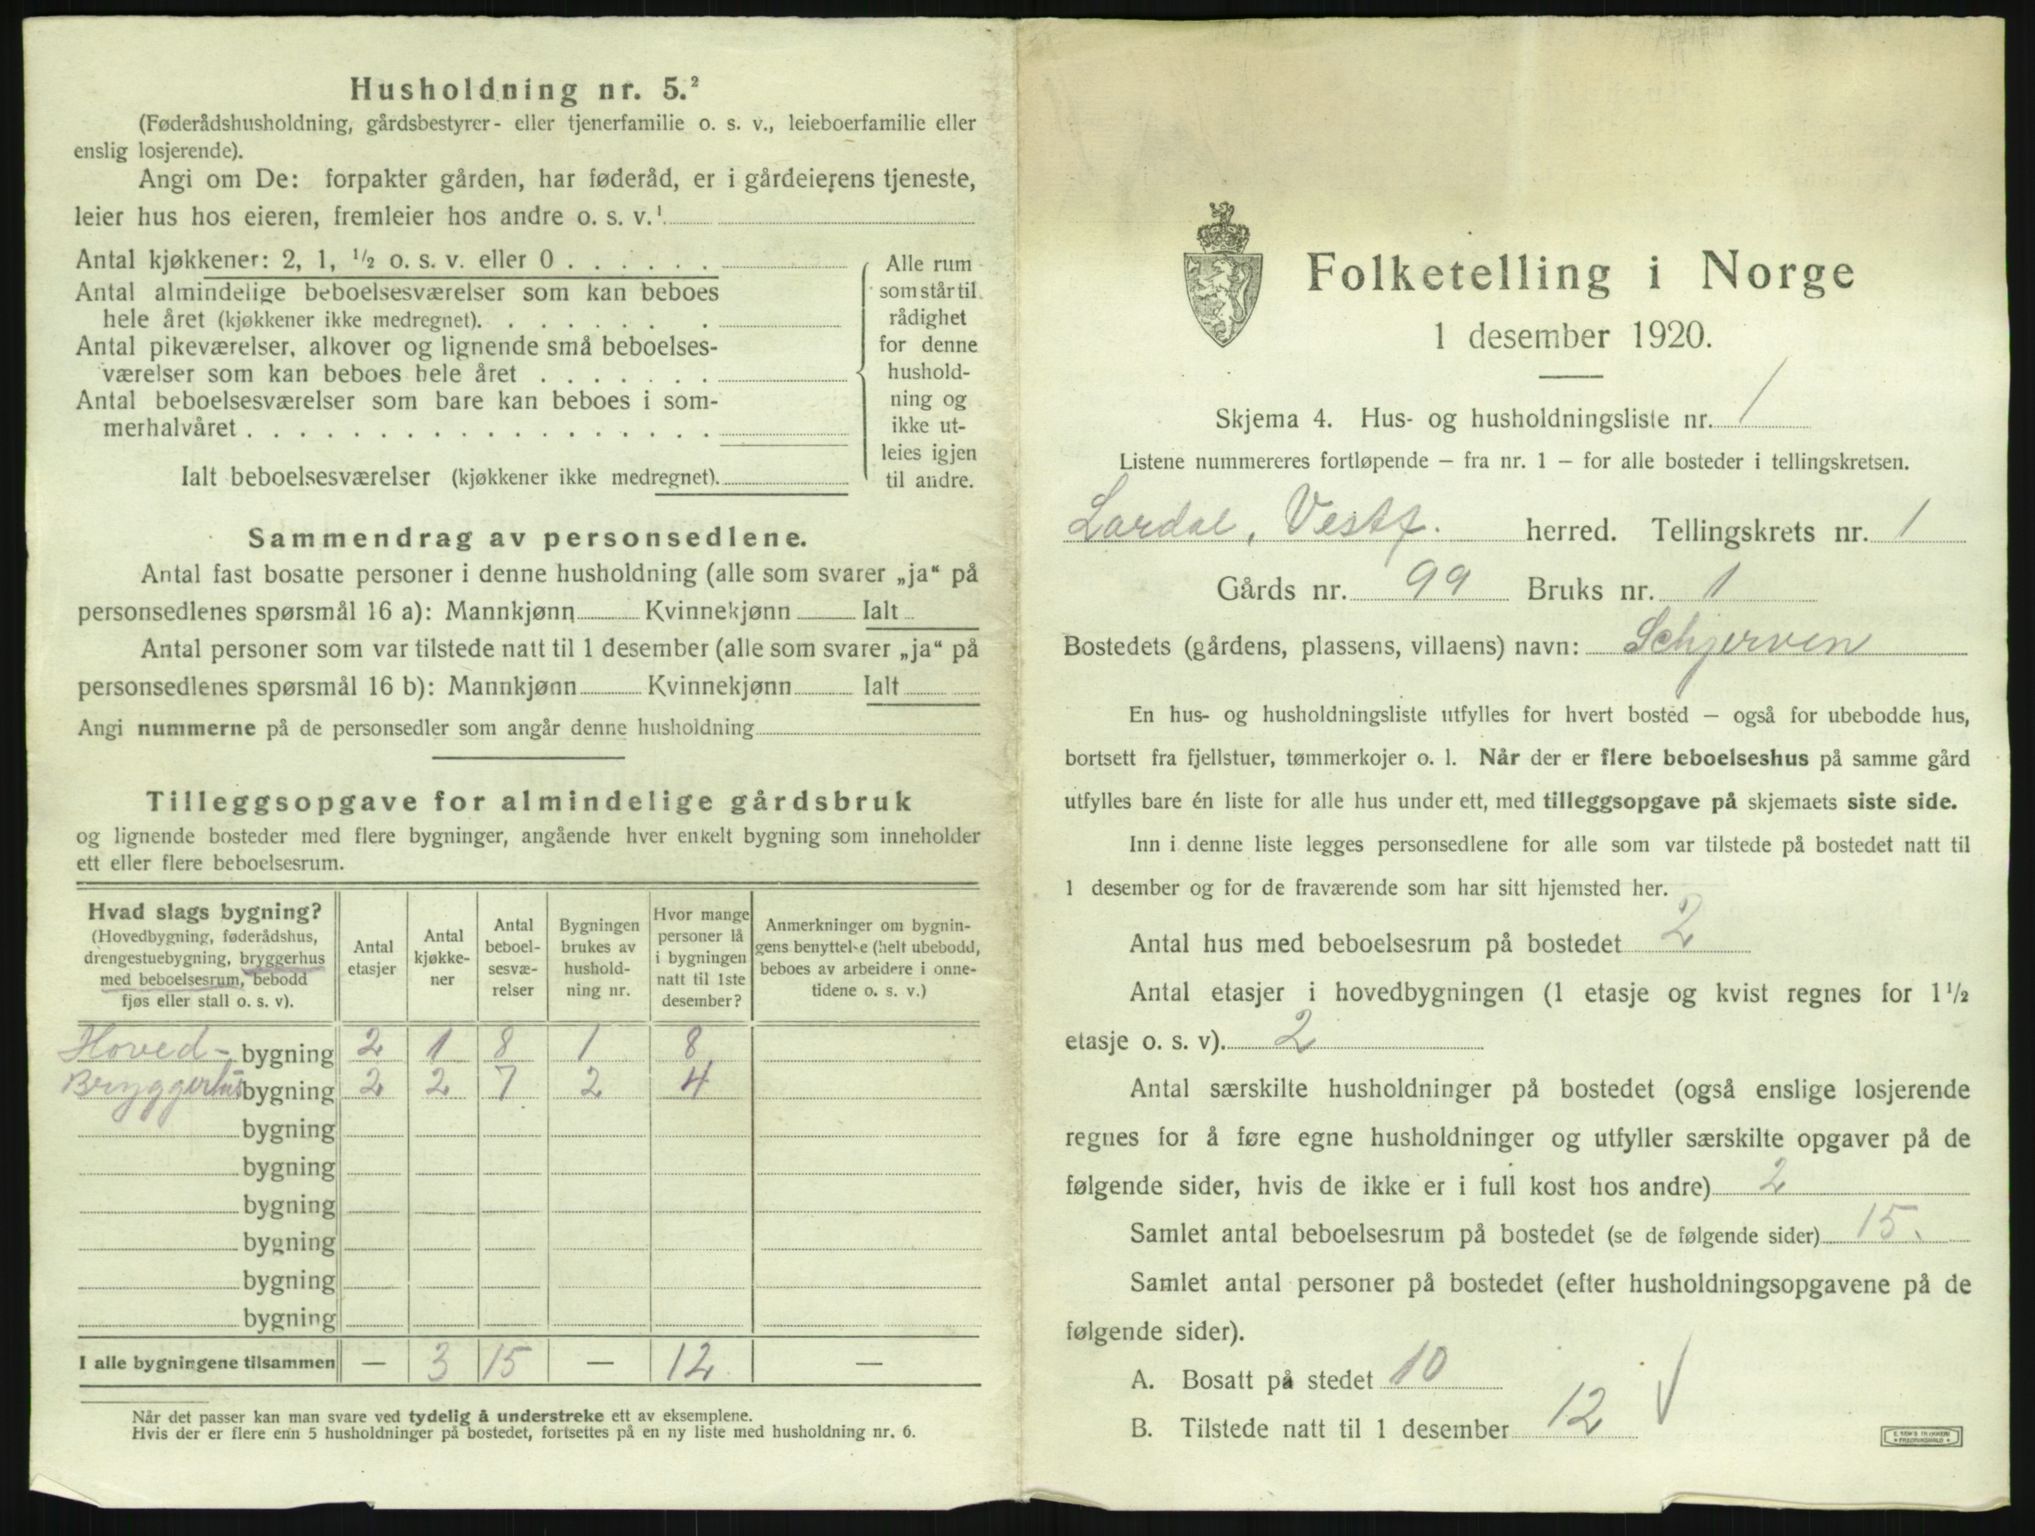 Husholdning nr. 5.²
(Føderådshusholdning, gårdsbestyrer- eller tjenerfamilie o. s. v., leieboerfamilie eller
enslig losjerende).
Angi om De: forpakter gården, har føderåd, er i gårdeierens tjeneste,
leier hus hos eieren, fremleier hos andre o. s. v.¹
Antal kjøkkener: 2, 1, ¹/₂ o. s. v. eller 0 . . . . . .
Antal almindelige beboelsesværelser som kan beboes
hele året (kjøkkener ikke medregnet). . . . . . . . .
Antal pikeværelser, alkover og lignende små beboelses-
værelser som kan beboes hele året . . . . . . .
Antal beboelsesværelser som bare kan beboes i som-
merhalvåret . . . . . . . . . . . . . . . . . .
Ialt beboelsesværelser (kjøkkener ikke medregnet).
Alle rum
som står til
rådighet
for denne
hushold-
ning og
ikke ut-
leies igjen
til andre.
Sammendrag av personsedlene.
Antal fast bosatte personer i denne husholdning (alle som svarer „ja“ på
personsedlenes spørsmål 16 a): Mannkjønn Kvinnekjønn Ialt
Antal personer som var tilstede natt til 1 desember (alle som svarer „ja“ på
personsedlenes spørsmål 16 b): Mannkjønn Kvinnekjønn Ialt
Angi nummerne på de personsedler som angår denne husholdning
Tilleggsopgave for almindelige gårdsbruk
og lignende bosteder med flere bygninger, angående hver enkelt bygning som inneholder
ett eller flere beboelsesrum.
Hvad slags bygning?
(Hovedbygning, føderådshus,
drengestuebygning, bryggerhus
med beboelsesrum, bebodd
fjøs eller stall o. s. v).
Antal
etasjer
Antal
kjøkke-
ner
Antal
beboel-
sesvæ-
relser
Bygningen
brukes av
hushold-
ning nr.
Hvor mange
personer lå
i bygningen
natt til 1ste
desember?
Anmerkninger om bygnin-
gens benyttelse (helt ubebodd,
beboes av arbeidere i onne-
tidene o. s. v.)
Hoved- bygning 2 1 8 1 8
Bryggerhus bygning 2 2 7 2 4
bygning
bygning
bygning
bygning
bygning
bygning
I alle bygningene tilsammen — 3 15 — 12 —
Når det passer kan man svare ved tydelig å understreke ett av eksemplene.
Hvis der er flere enn 5 husholdninger på bostedet, fortsettes på en ny liste med husholdning nr. 6.
Folketelling i Norge
1 desember 1920.
Skjema 4. Hus- og husholdningsliste nr. 1
Listene nummereres fortløpende — fra nr. 1 — for alle bosteder i tellingskretsen.
Lardal, Vestf. herred. Tellingskrets nr. 1
Gårds nr. 99 Bruks nr. 1
Bostedets (gårdens, plassens, villaens) navn: Schjerven
En hus- og husholdningsliste utfylles for hvert bosted — også for ubebodde hus,
bortsett fra fjellstuer, tømmerkojer o. l. Når der er flere beboelseshus på samme gård
utfylles bare én liste for alle hus under ett, med tilleggsopgave på skjemaets siste side.
Inn i denne liste legges personsedlene for alle som var tilstede på bostedet natt til
1 desember og for de fraværende som har sitt hjemsted her.
Antal hus med beboelsesrum på bostedet 2
Antal etasjer i hovedbygningen (1 etasje og kvist regnes for 1¹/₂
etasje o. s. v). 2
Antal særskilte husholdninger på bostedet (også enslige losjerende
regnes for å føre egne husholdninger og utfyller særskilte opgaver på de
følgende sider, hvis de ikke er i full kost hos andre) 2
Samlet antal beboelsesrum på bostedet (se de følgende sider) 15.
Samlet antal personer på bostedet (efter husholdningsopgavene på de
følgende sider).
A. Bosatt på stedet 10
B. Tilstede natt til 1 desember 12